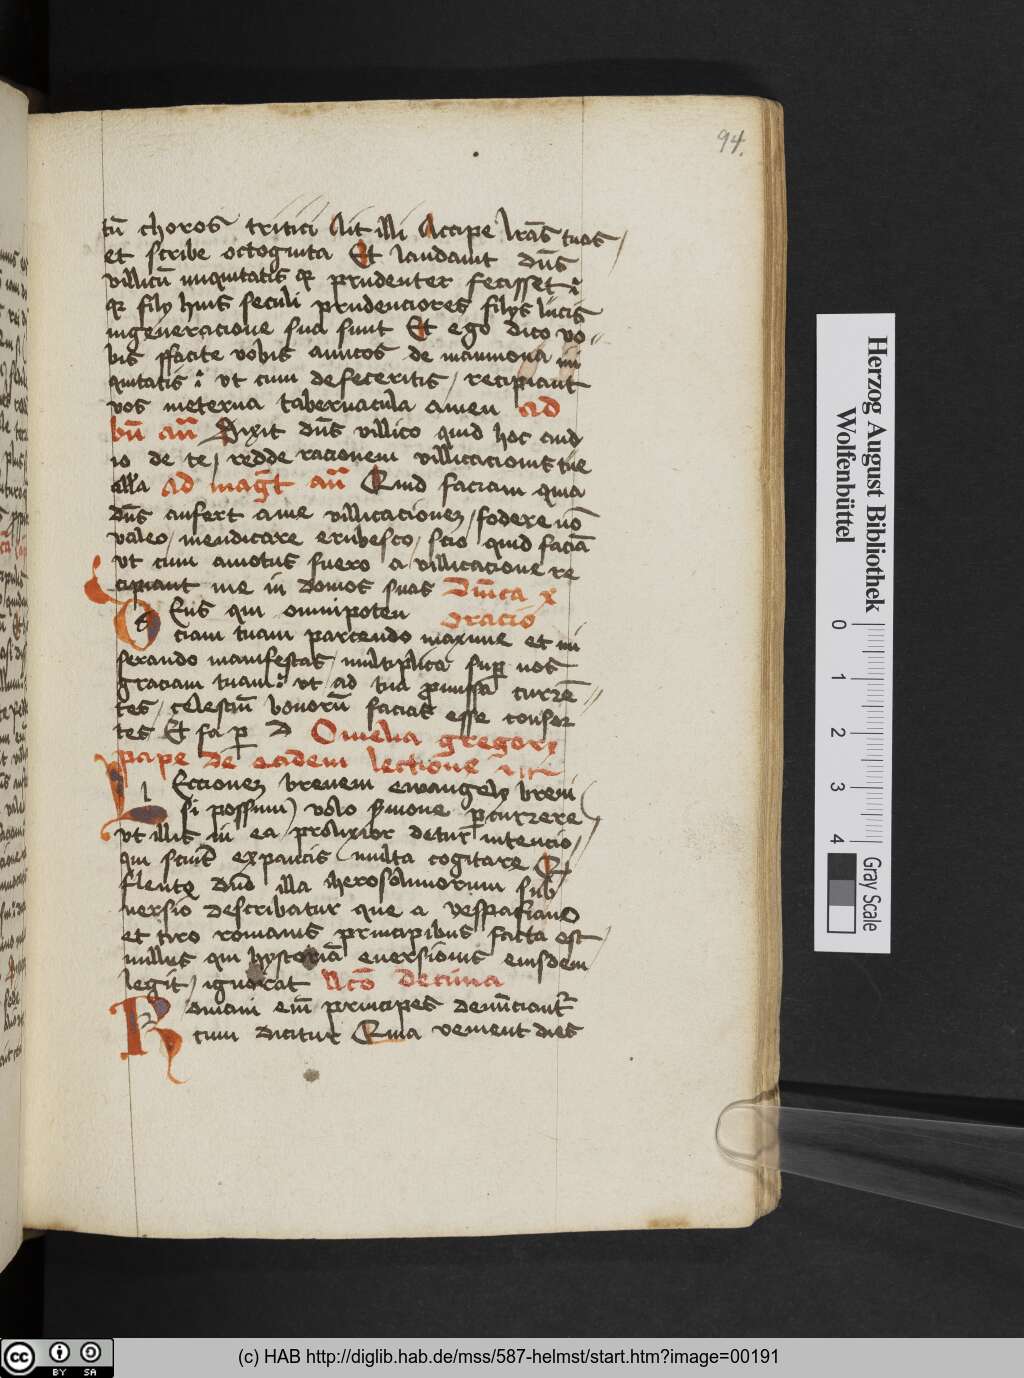 94.
tū choros tritici Ait illi Accipe lrās tuas
et scribe octoginta Et laudauit dn̄s
villicū iniquitatis qr prudenter fecisset
qr filij huius seculi prudenciores filijs lucis
ingeneracione sua sunt Et ego dico vo
bis ffacite vobis amicos de mammona ini
quitatis : vt cum defeceritis / recipiant
vos ineterna tabernacula amen ad
bn̄ an̄ Dixit dn̄s villico quid hoc audi
io de te / redde racionem villicacionis tue
alla ad magt an̄ Quid faciam quia
dn̄s aufert ame villicacionem / fodere nō
valeo / mendicare erubesco / scio quid faciā
vt cum amotus fuero a villicacione re
cipiant me in domos suas Dn̄ica x
Deus qui omnipoten oracio
ciam tuam parcendo maxime et mi
serando manifestas / multiplica sup nos
graciam tuam : vt ad tua promissa currē
tes / celestiū bonorū facias esse consor
tes Et fa p D Omelia gregorij
pape de eadem lectione
Leccionem breuem ewangelij breui
si possum volo smone pcurrere
vt illis in ea prolixior detur intencio /
qui sciūt expaucis multa cogitare Q
flente dn̄o illa iherosolimorum sub
uersio describatur que a vespasiano
et tito romanis principibus facta est
nullus qui hystoriā euersionis eiusdem
legit / ignorat Lcō decima
Romani em̄ principes denūciantr
cum dicitur Quia venient dies
Herzog August Bibliothek
Wolfenbüttel
0 1 2 3 4
Gray Scale
cc BY SA
(c) HAB http://diglib.hab.de/mss/587-helmst/start.htm?image=00191